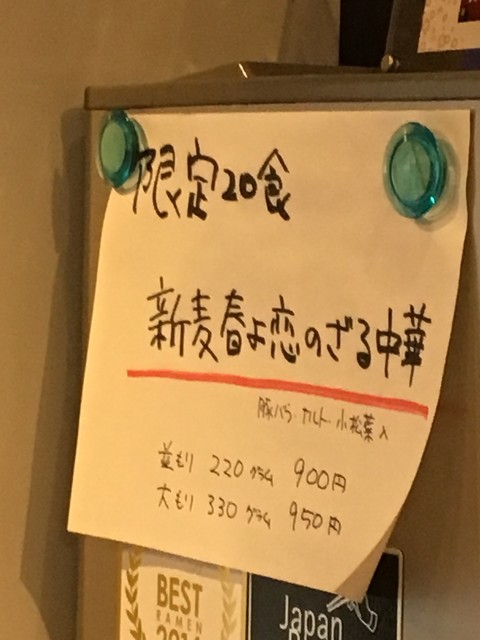 限定20食
新麦春よ恋のざる中華
豚バラ・ナルト・小松菜入
並もり 220グラム 900円
大もり 330グラム 950円
BEST
RAMEN
Japan